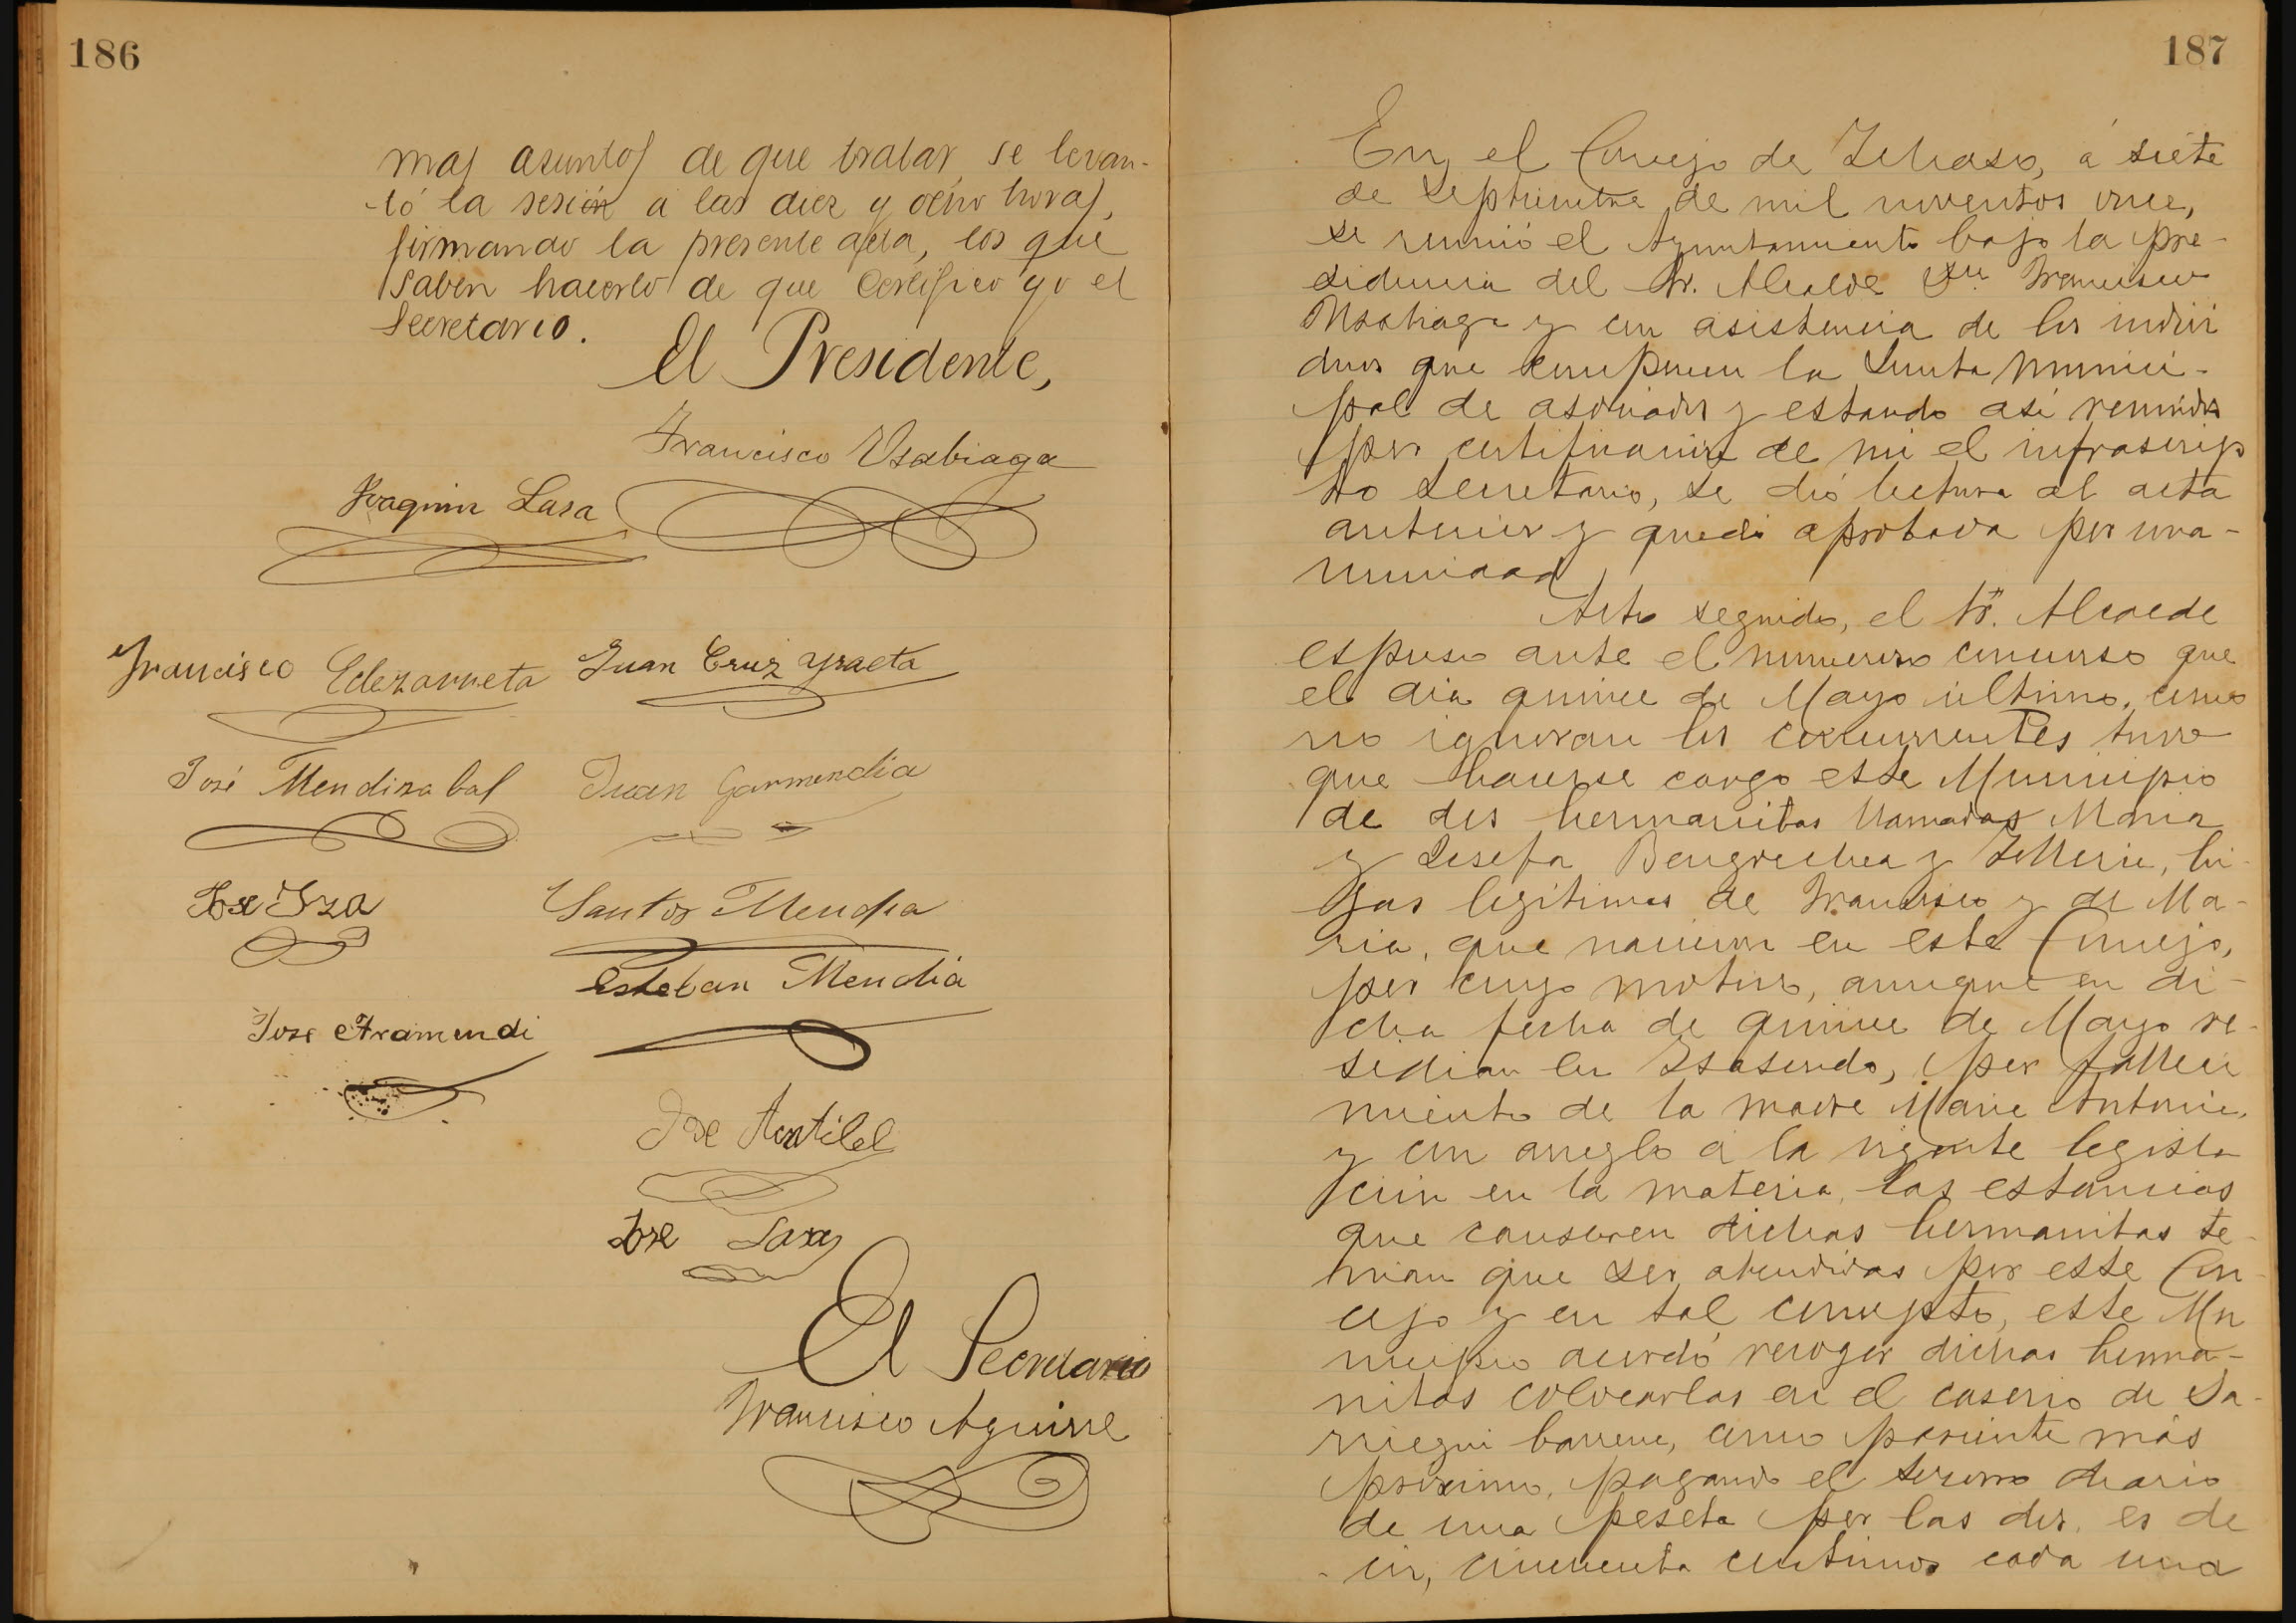 186
mas asuntos de que tratar, se levan-
-tó la sesión a las diez y ocho horas,
firmando la presente acta, los que
saben hacerlo de que certifico yo el
Secretario.
El Presidente,
Francisco Usabiaga
Joaquin Lasa
Francisco Echezarreta
Juan Cruz Yraeta
José Mendizabal
Juan Garmendia
José Yza
Santos Mendia
Esteban Mendia
Jose Aramendi
Jose
Jose Lasa
El Secretario
Francisco Aguirre
187
En el Concejo de Ichaso, á siete
de Septiembre de mil novecientos once,
se reunió el Ayuntamiento bajo la pre-
sidencia del Sr. Alcalde Dn. Francisco
Usabiaga y con asistencia de los indivi
duos que componen la Junta Munici-
pal de asociados y estando así reunidos
por certificación de mi el infrascrip
to Secretario, se dió lectura al acta
anterior y quedó aprobada por una-
nimidad
Acto seguido, el Sr. Alcalde
espuso ante el numeroso concurso que
el dia quince de Mayo último, como
no ignoran los concurrentes tuvo
que hacerse cargo este Municipio
de dos hermanitas llamadas Maria
y Josefa Bengoechea y, hi-
jas legítimas de Francisco y de Ma-
ria, que nacieron en este Concejo,
por cuyo motivo, aunque en di-
cha fecha de quince de Mayo re-
sidian en Isasondo, por falleci
miento de la madre Maria Antonia,
y con arreglo á la vigente legisla
ción en la materia, las estancias
que causaren dichas hermanitas te-
nian que ser atendidas por este Con-
cejo y en tal concepto, este Mu
nicipio acordó recoger dichas herma-
nitas colocarlas en el caserio de Sa-
rriegui barrena, como pariente más
próximo, pagando el socorro diario
de una peseta por las dos, es de
-cir, cincuenta centimos cada una